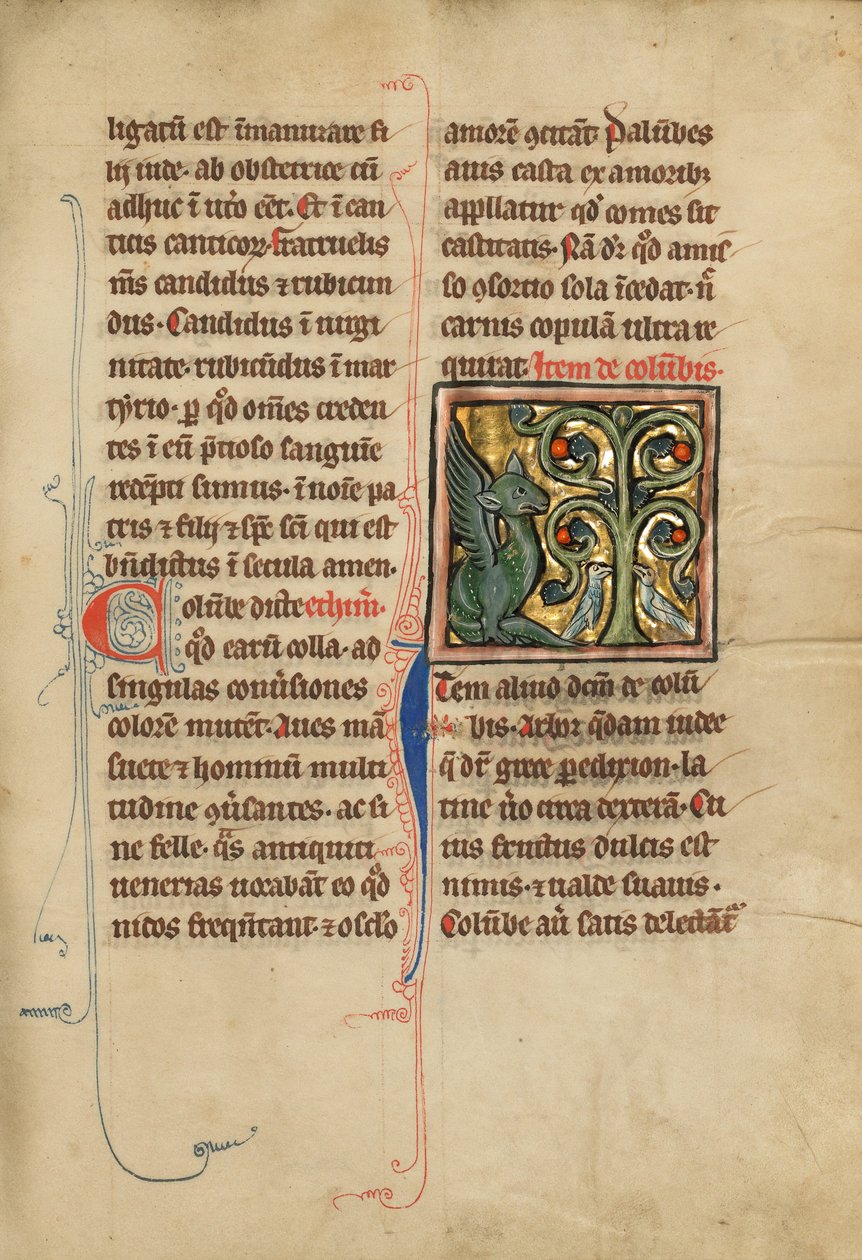 ligatū est īmanu zare fi
lij iude· ab obstetrice cū
adhuc ī uťo eēt· Et ī can
ticis canticoꝝ· fratruelis
m̄s candidus ⁊ rubicun
dus· Candidus ī uirgi
nitate· rubicūdus ī mar
tyrio· ꝑ qͦd om̄es creden
tes ī eū p̄tioso sanguīe
redēpti sumus· ī noīe pa
tris ⁊ filij ⁊ sp̄c sc̄i qui est
bn̄dictus ī secula amen·
Colūbe dicte ethim̄·
qͦd earū colla· ad
singulas conūsiones
colorē mutēt· Aues mā
suete ⁊ hominū multi
tudine ꝯūsantes· ac si
ne felle· qᵃs antiquiti
uenerias uocabāt eo qͦd
nidos freqn̄tant· ⁊ osclo
amorē ꝯcitāt· Palūbes
auis casta ex amoribꝫ
appllatur qd̓ comes sit
castitatis· Nā dr̄ qͦd amis
so ꝯsortio sola īcedat· n̄
carnis copulā ultra re
quirat· Item de colūbis·
Item aliud dcm̄ de colū
bis· Arbor q̄dam iudee
q̄ dr̄ grece peridixion· la
tine ůo circa dexterā· Cu
ius fructus dulcis est
nimis· ⁊ ualde suauis·
Colūbe aū satis delectāt᷑